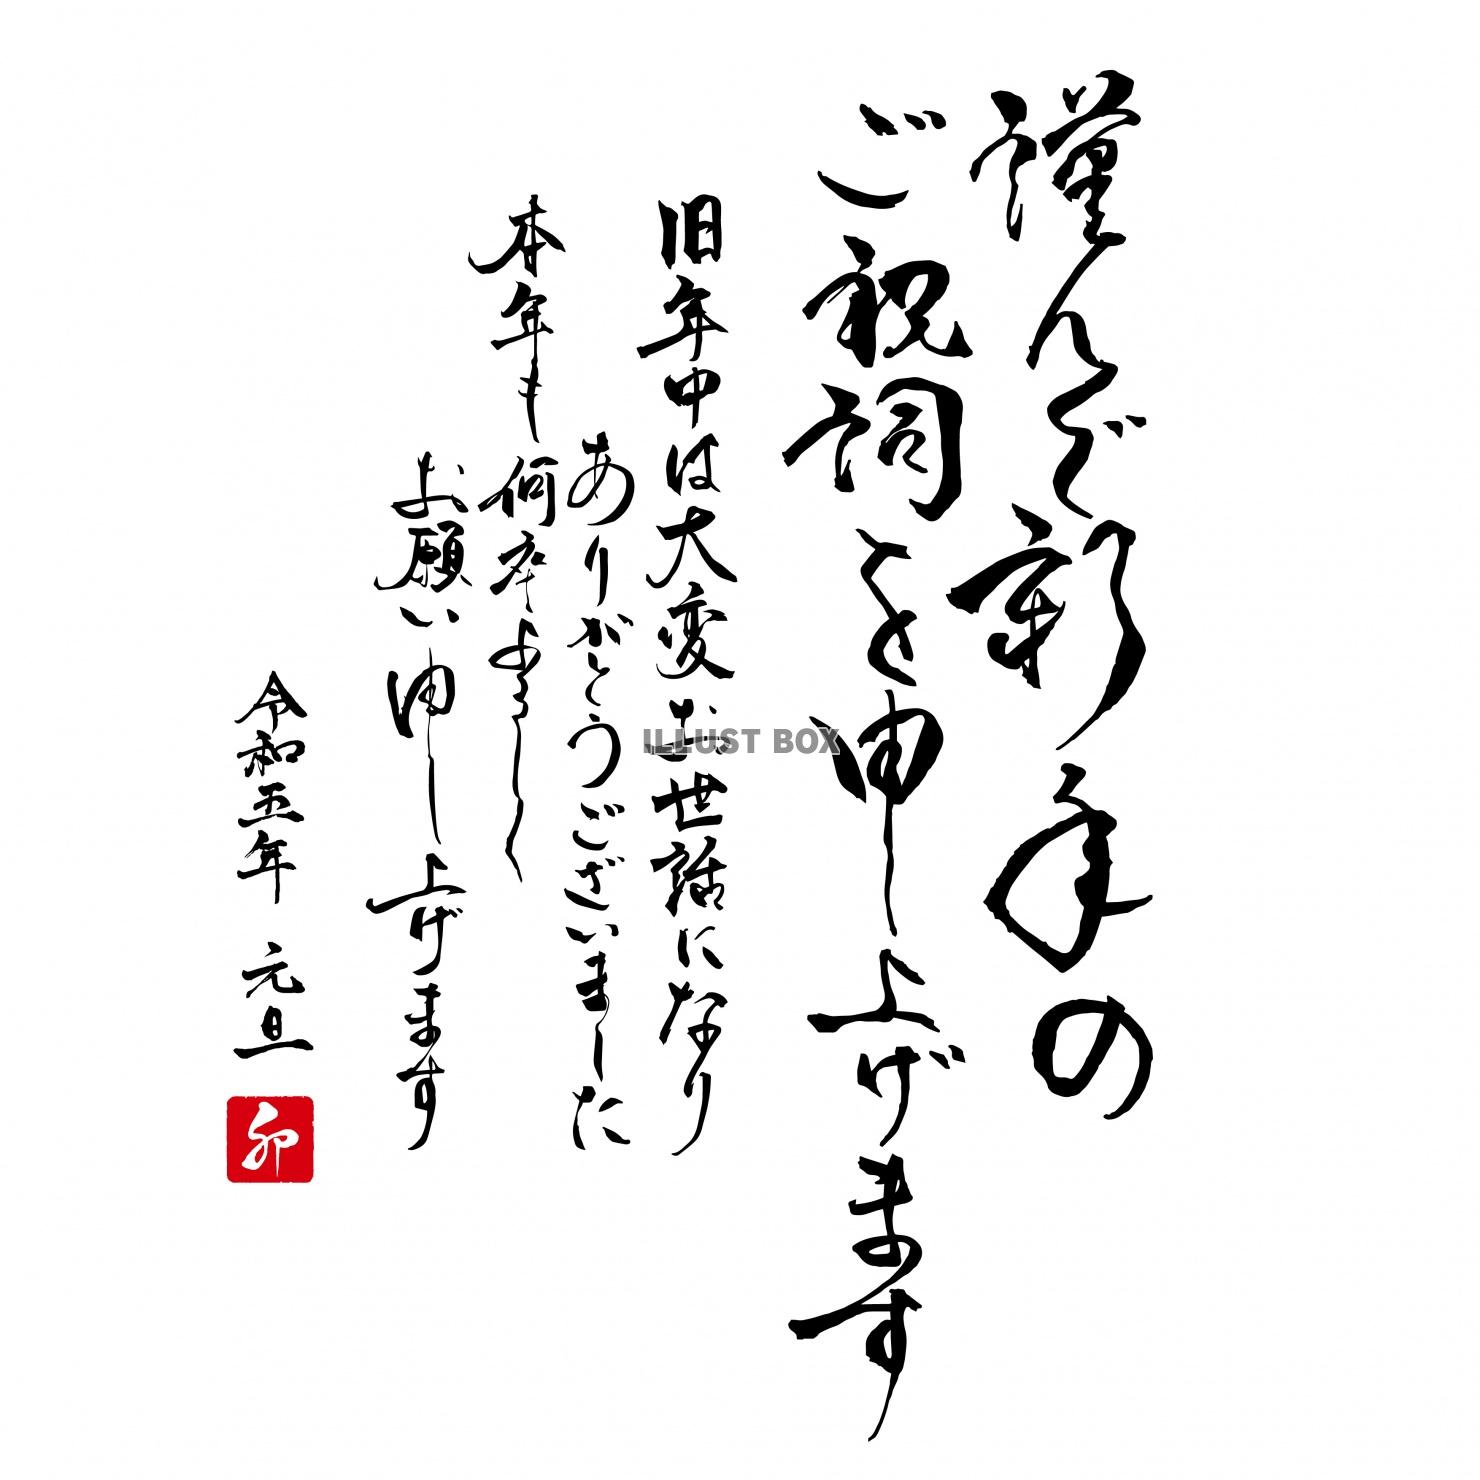 謹んで新年の
ご祝詞を申し上げます
旧年中は大変お世話になり
ありがとうございました
本年も何卒よろしく
お願い申し上げます
令和五年 元旦
卯
ILLUST BOX